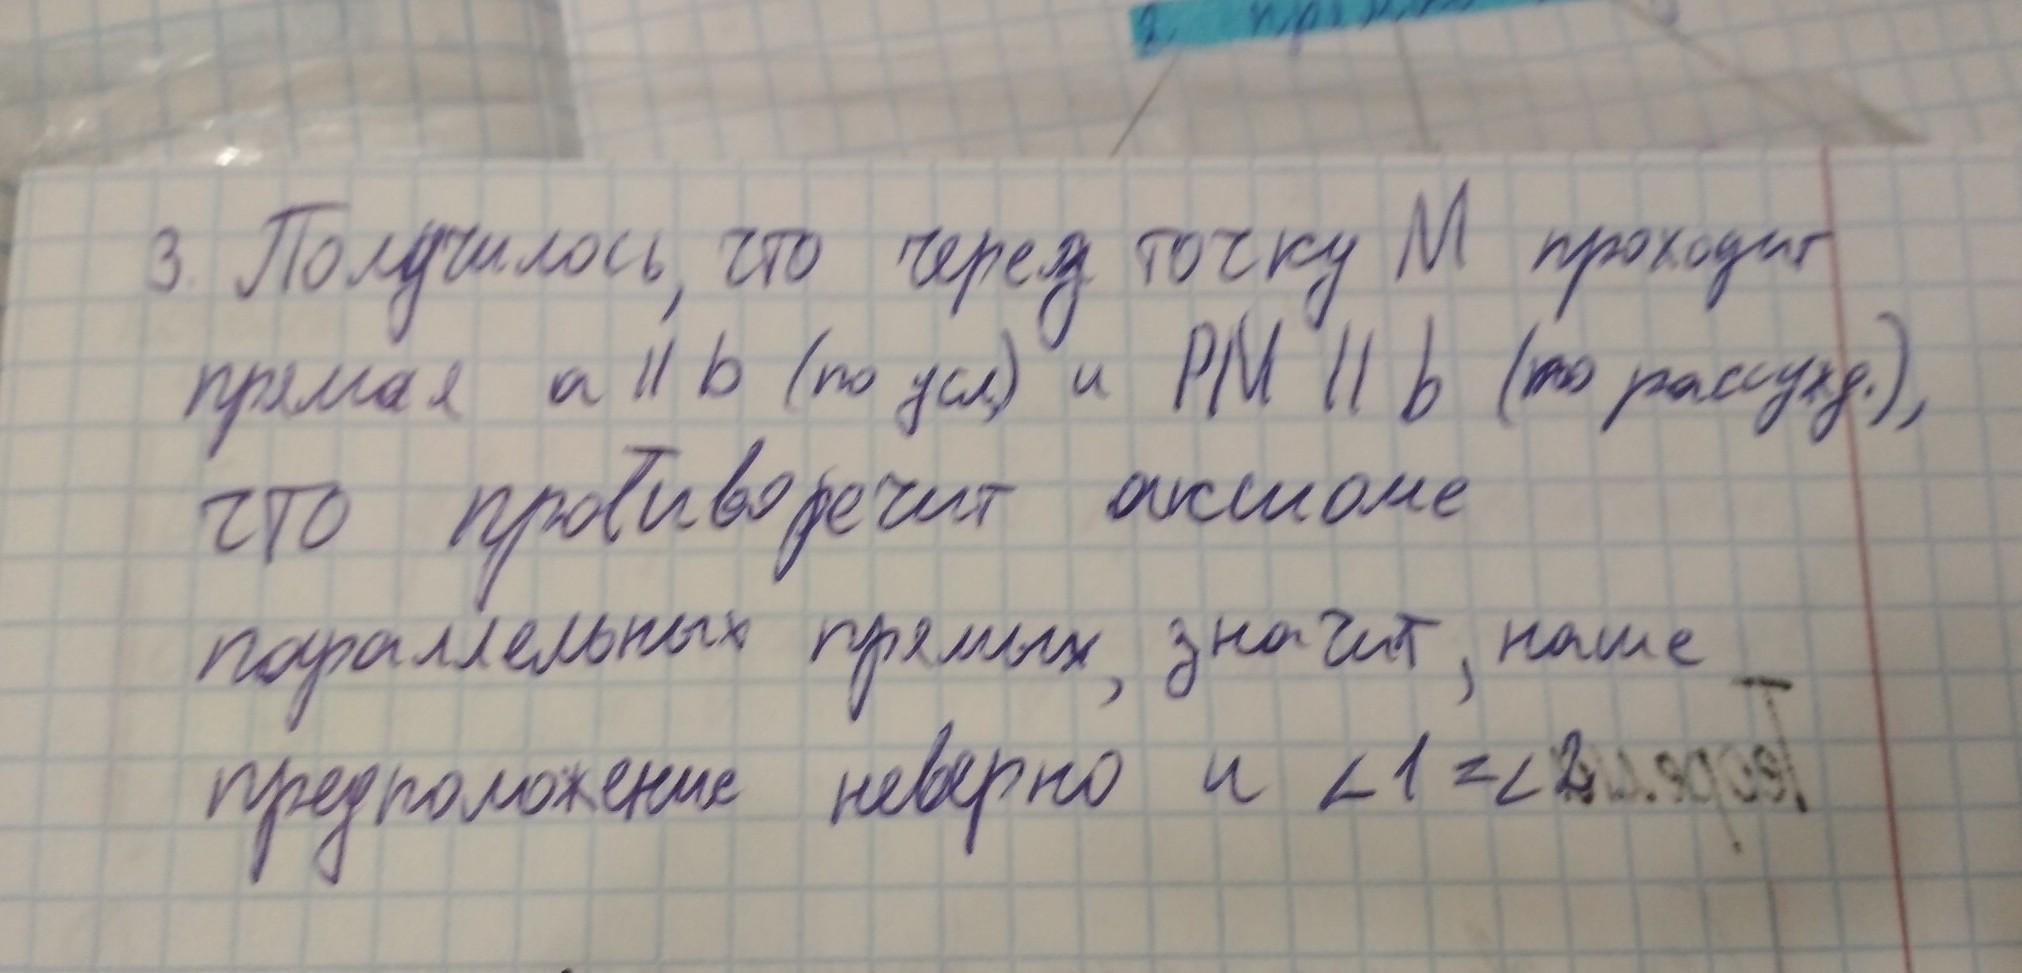 3. Получилось, что через точку М проходит
прямая a || b (по усл) и PM || b (по рассужд.),
что противоречит аксиоме
параллельных прямых, значит, наше
предположение неверно и ∠1 = ∠2